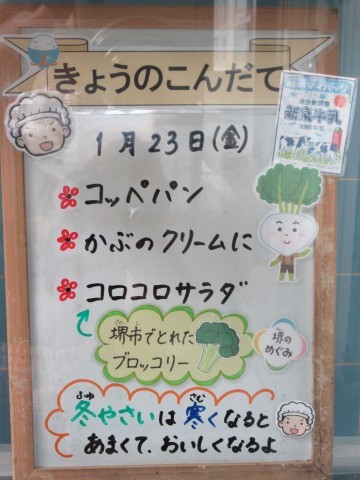 きょうのこんだて
1月23日(金)
コッペパン
かぶのクリームに
コロコロサラダ
堺市でとれた
ブロッコリー
堺の
めぐみ
ふゆ さむ
冬やさいは寒くなると
あまくて、おいしくなるよ